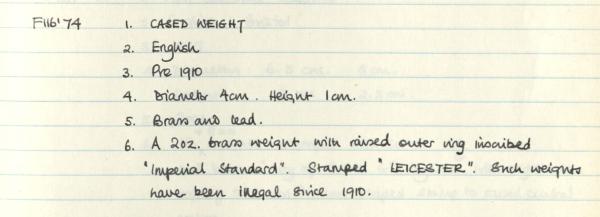 F116'74 1. CASED WEIGHT
2. English
3. Pre 1910
4. Diameter 4cm. Height 1cm.
5. Brass and lead.
6. A 2oz. brass weight with raised outer ring inscribed
"Imperial Standard". Stamped "LEICESTER". Such weights
have been illegal since 1910.